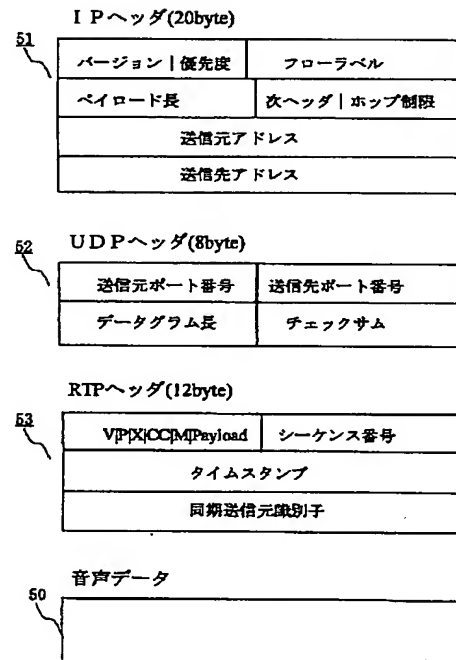 ＩＰヘッダ(20byte)
51
バージョン | 優先度 フローラベル
ペイロード長 次ヘッダ | ホップ制限
送信元アドレス
送信先アドレス
ＵＤＰヘッダ(8byte)
52
送信元ポート番号 送信先ポート番号
データグラム長 チェックサム
RTPヘッダ(12byte)
53
V|P|X|CC|M|Payload シーケンス番号
タイムスタンプ
同期送信元識別子
音声データ
50